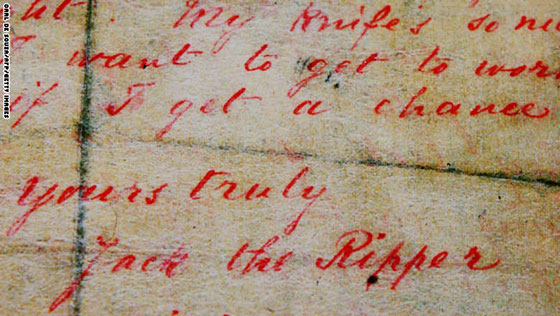 ht. My knife's so ni
I want to get to wor
if I get a chance
Yours truly
Jack the Ripper
CARL DE SOUZA/AFP/GETTY IMAGES